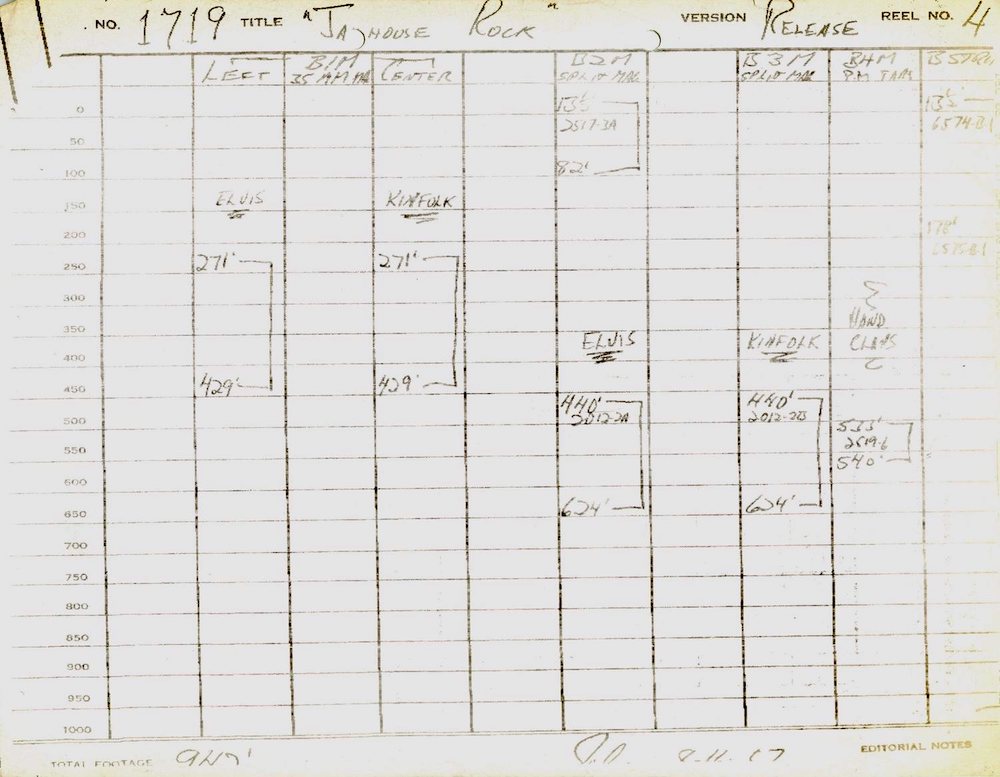 NO. 1719 TITLE "JAILHOUSE ROCK" VERSION RELEASE REEL NO. 4
LEFT B1M CENTER B2M B3M B4M
35 MM SPLIT MAG SPLIT MAG
0
50
100
150
200
250
300
350
400
450
500
550
600
650
700
750
800
850
900
950
1000
ELVIS
271'
429'
KINFOLK
271'
429'
2517-3A
82'
ELVIS
440'
2012-2A
624'
KINFOLK
440'
2012-2B
624'
HAND
CLAPS
533'
2519-6
540'
6574-B1
178'
6575-B1
TOTAL FOOTAGE 947'
EDITORIAL NOTES